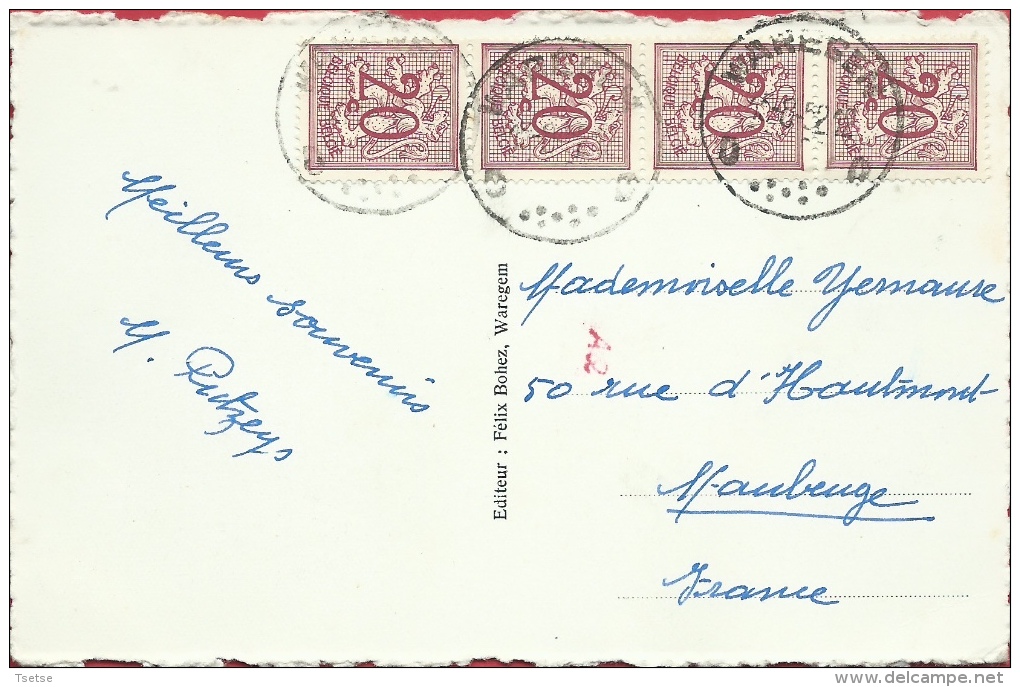 20c
BELGIQUE
BELGIE
20c
BELGIQUE
BELGIE
20c
BELGIQUE
BELGIE
20c
BELGIQUE
BELGIE
WAREGEM
WAREGEM
WAREGEM
Meilleurs souvenirs
M. Putzeys
Editeur : Félix Bohez, Waregem
A2
Mademoiselle Yernause
50 rue d'Hautmont
Maubeuge
France
Tsetse
delcampe.net